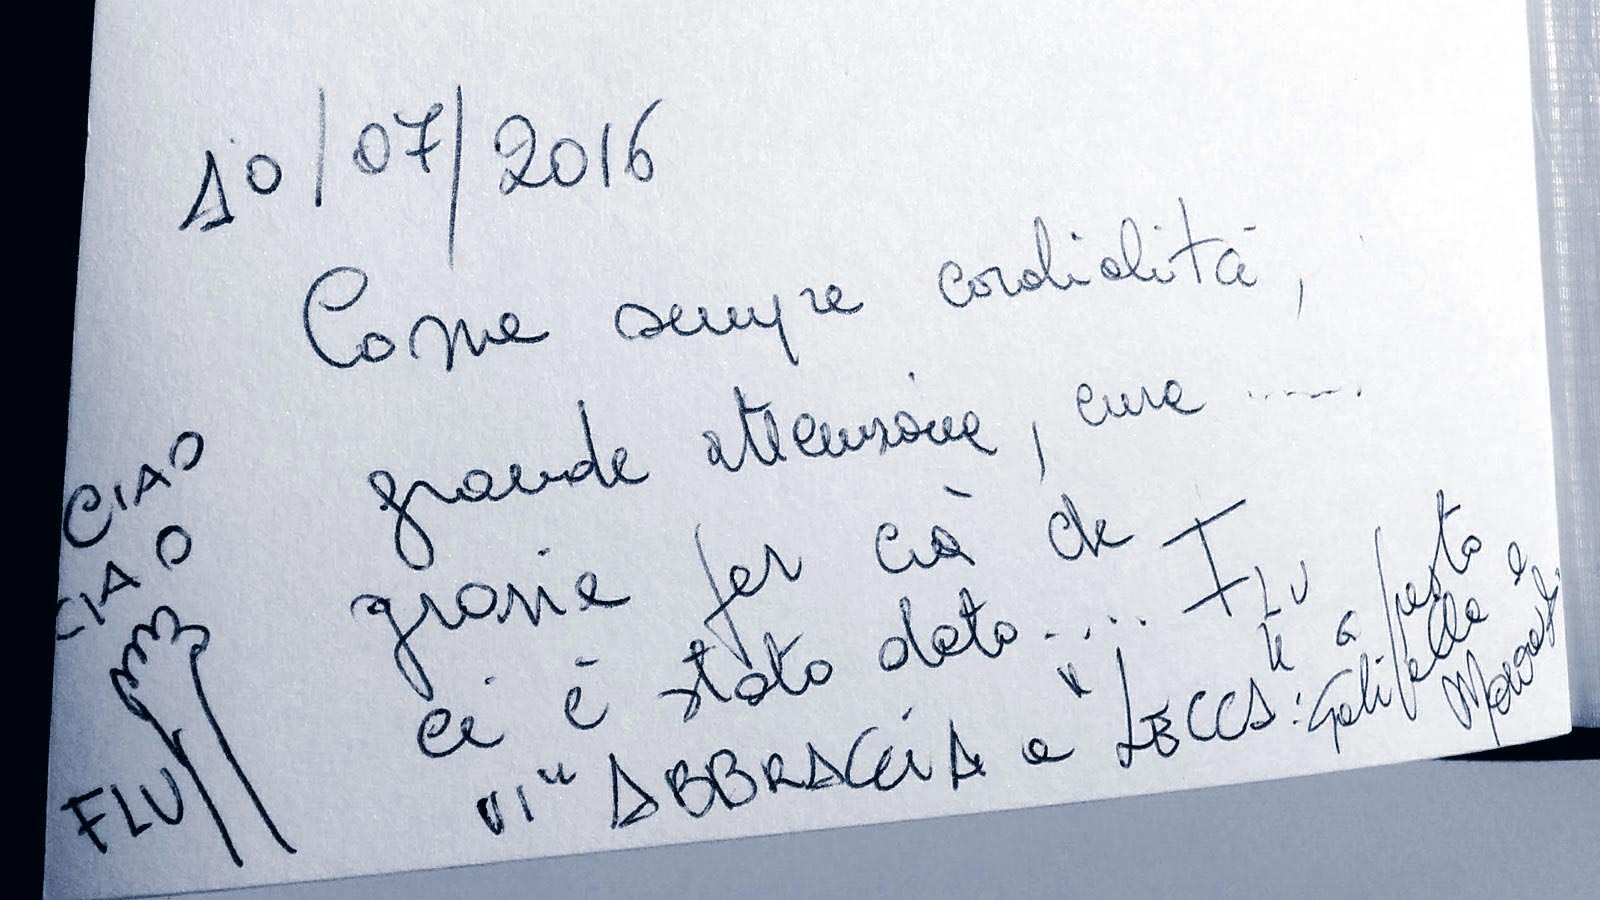 10/07/2016
Come sempre cordialità,
grande attenzione, cure .....
grazie per ciò che
ci è stato dato.... FLU
"VI" ABBRACCIA e "LECCA":
a presto
e
CIAO
CIAO
FLU